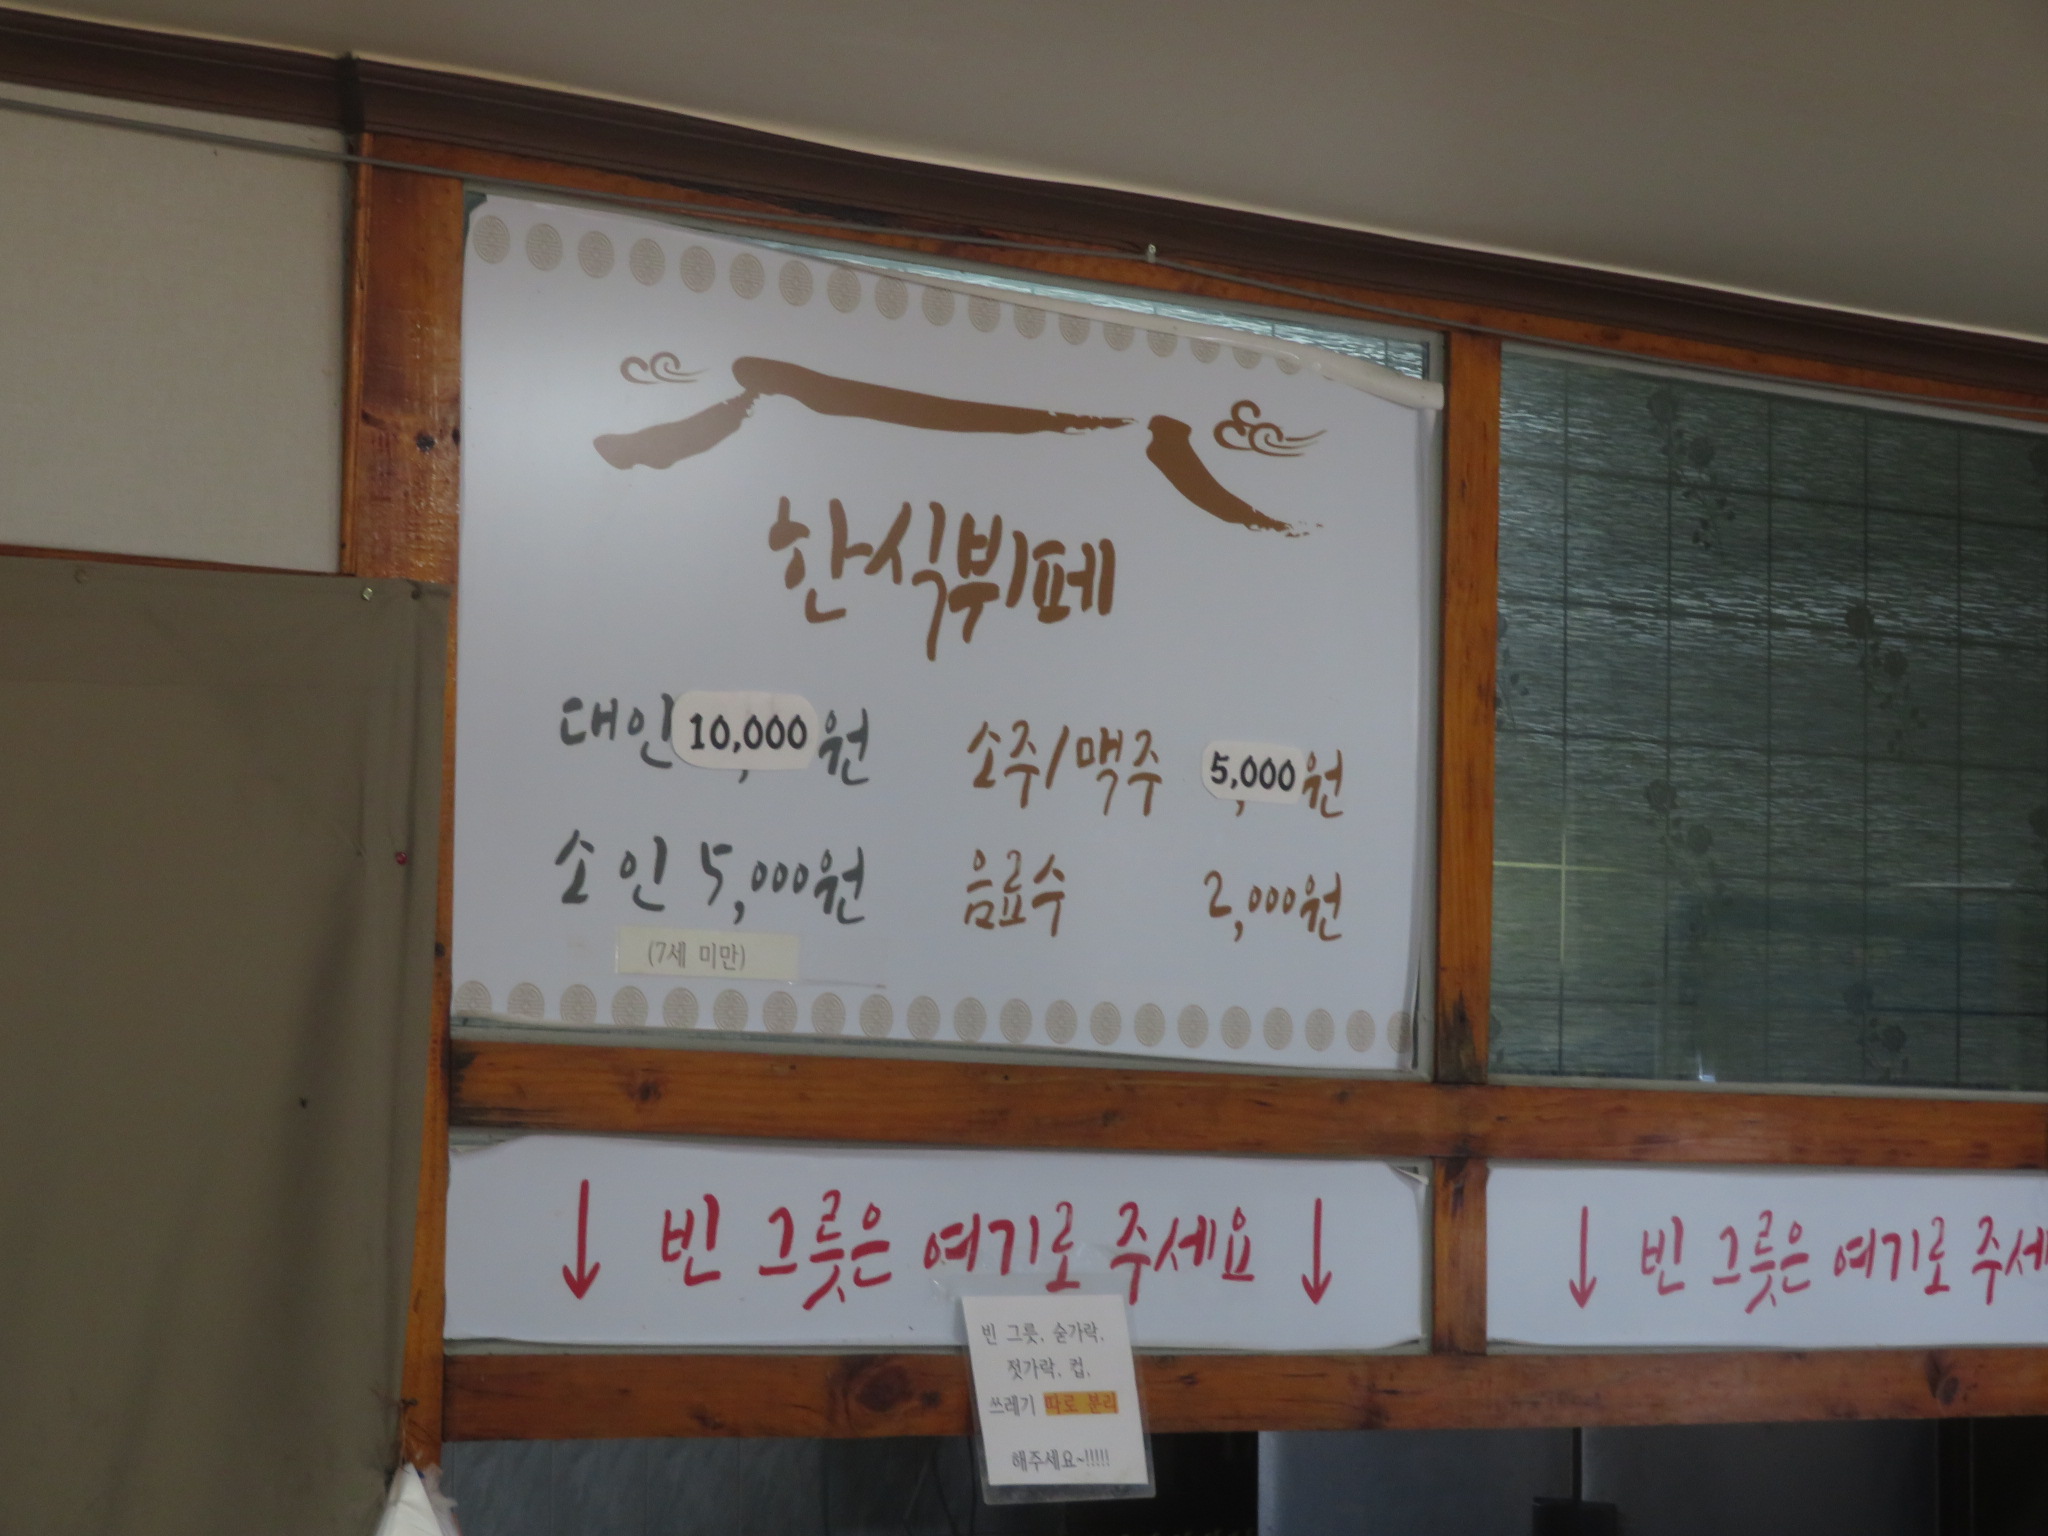 한식뷔페
대인 10,000원
소인 5,000원
(7세 미만)
소주/맥주 5,000원
음료수 2,000원
↓ 빈 그릇은 여기로 주세요 ↓
↓ 빈 그릇은 여기로 주세
빈 그릇, 숟가락,
젓가락, 컵,
쓰레기 따로 분리
해주세요~!!!!!